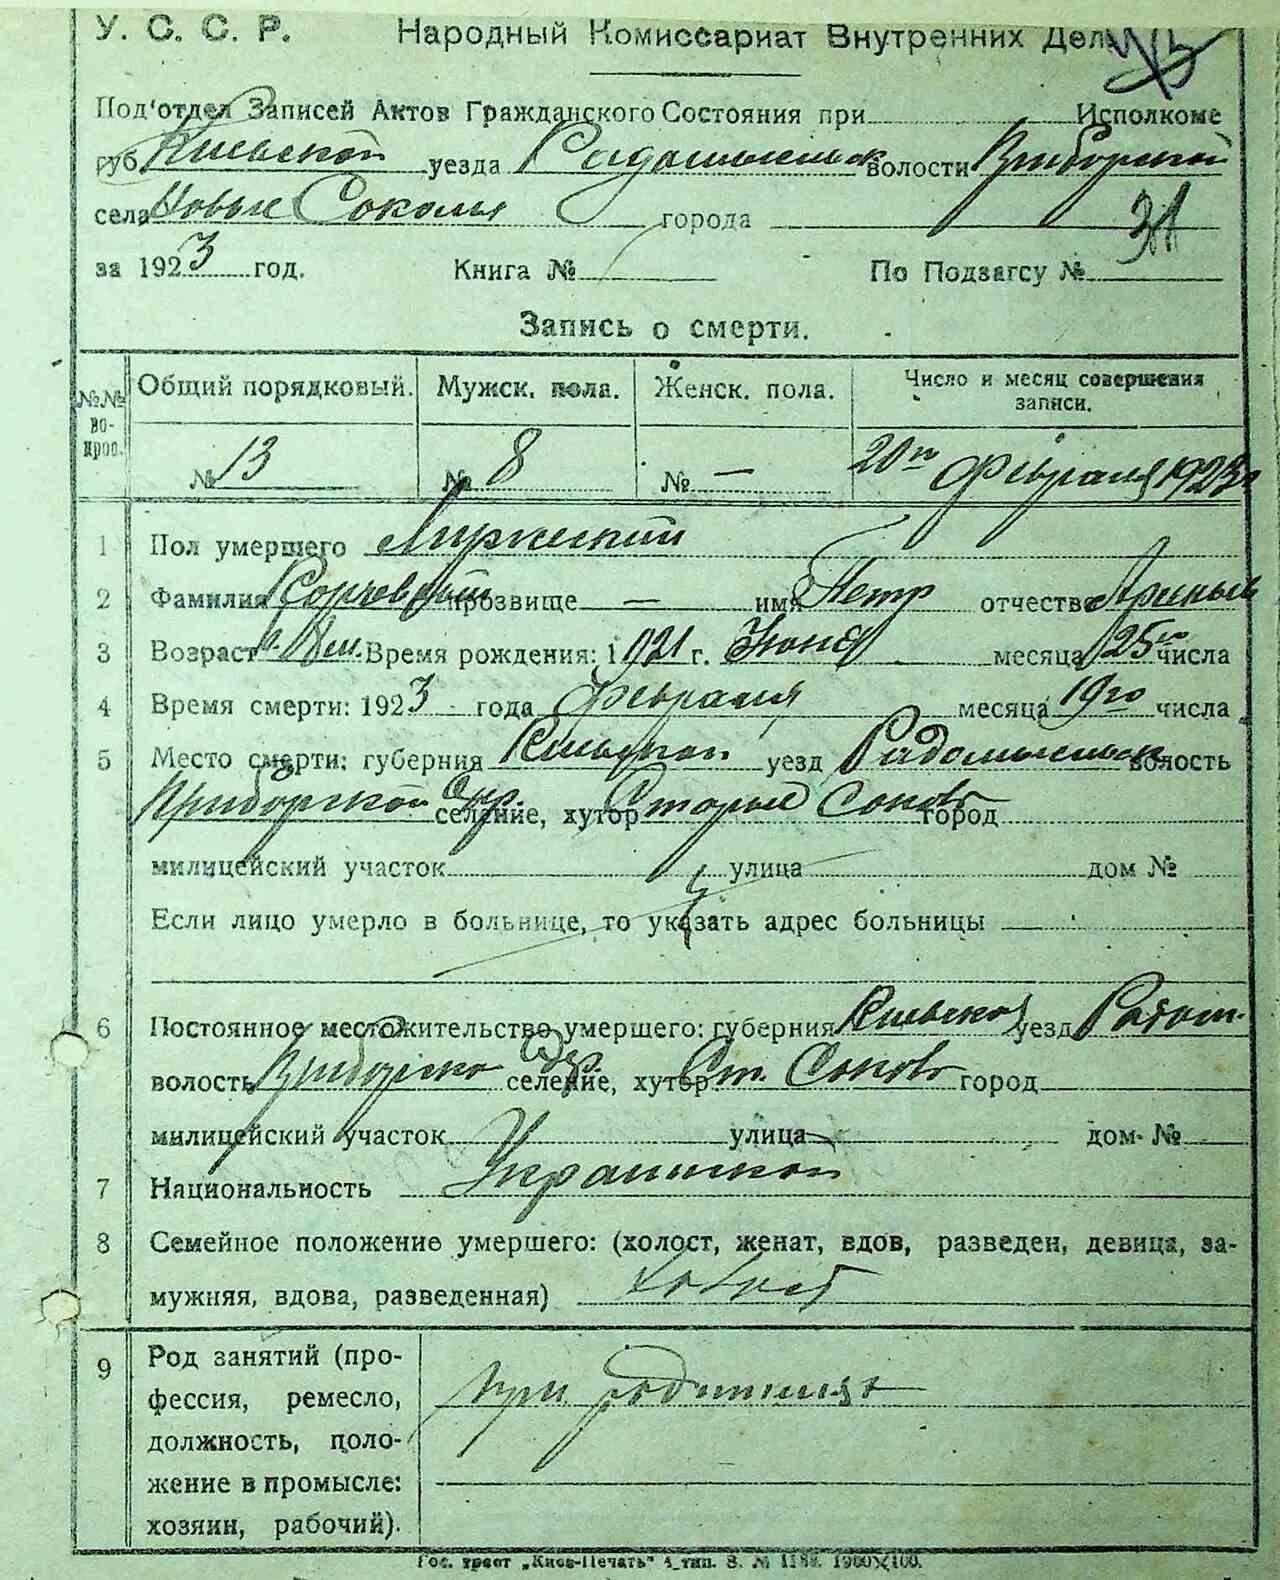 У. С. С. Р. Народный Комиссариат Внутренних Дел.
Под'отдел Записей Актов Гражданского Состояния при Исполкоме
губ Киевской уезда Радомысльск волости Приборской
села Новые Соколы города
за 1923 год. Книга № По Подзагсу № 31
Запись о смерти.
№№ вопрос. Общий порядковый. Мужск. пола. Женск. пола. Число и месяц совершения записи.
№ 13 № 8 № — 20го февраля 1923
1 Пол умершего Мужеский
2 Фамилия прозвище — имя Петр отчество
3 Возраст 1 г. 8 м. Время рождения: 1921 г. Июня месяца 25го числа
4 Время смерти: 1923 года февраля месяца 19го числа
5 Место смерти: губерния Киевской уезд Радомысльск волость
Приборской селение, хутор Старые Сокол город
милицейский участок улица дом №
Если лицо умерло в больнице, то указать адрес больницы
6 Постоянное местожительство умершего: губерния Киевской уезд Радом.
волость Приборско селение, хутор Ст. Сокол город
милицейский участок улица дом №
7 Национальность
8 Семейное положение умершего: (холост, женат, вдов, разведен, девица, за-
мужняя, вдова, разведенная) холост
9 Род занятий (про-
фессия, ремесло, при родителях
должность, поло-
жение в промысле:
хозяин, рабочий).
Гос. трест „Киев-Печать" 4 тип. З. №